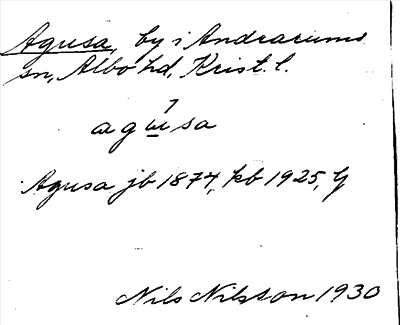 Agusa, by i Andrarums
sn, Albo hd, Krist. l.
agusa
Agusa jb 1874, kb 1925, G
Nils Nilsson 1930